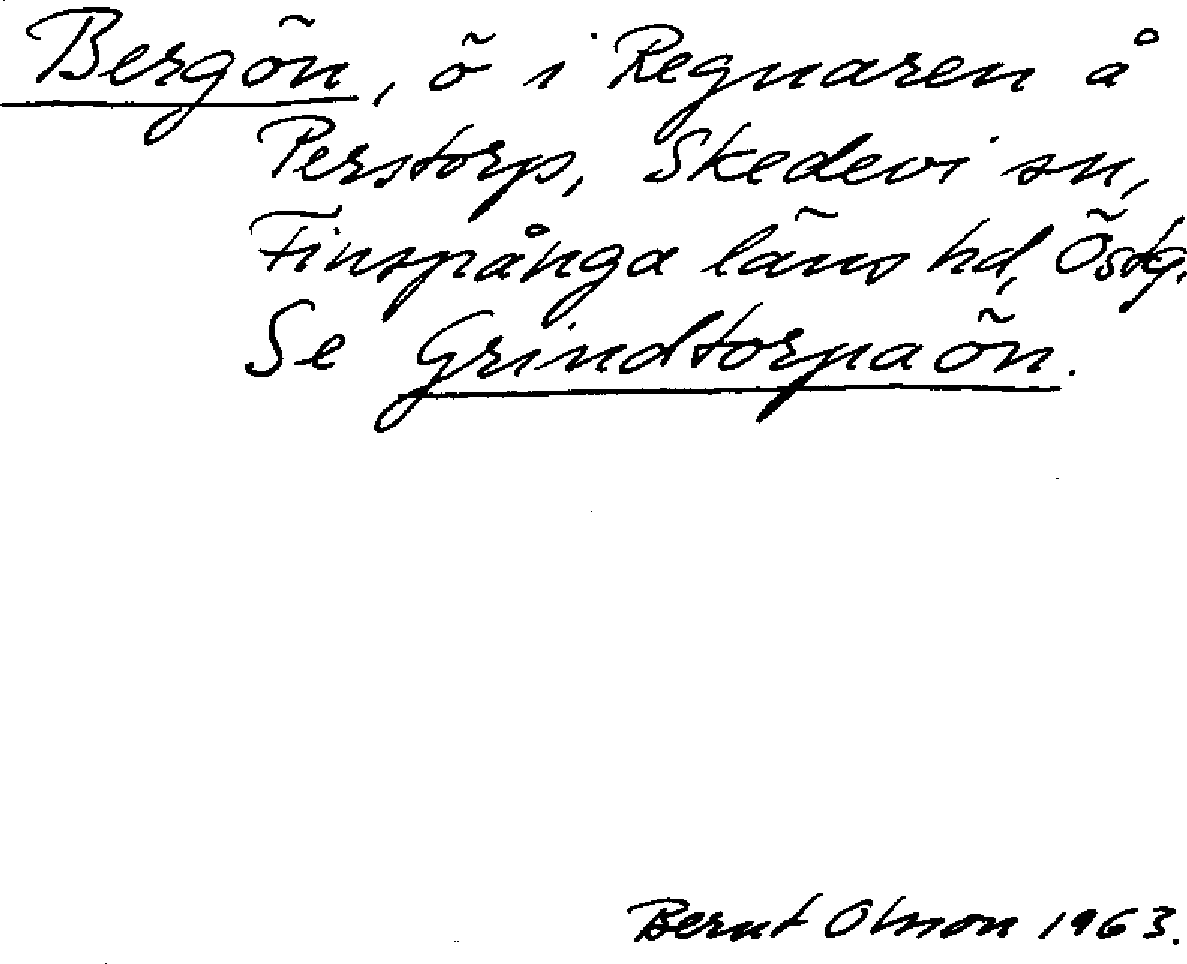 Bergön, ö i Regnaren å
Perstorp, Skedevi sn,
Finspånga läns hd, Östg.
Se Grindtorpaön.
Bernt Olsson 1963.